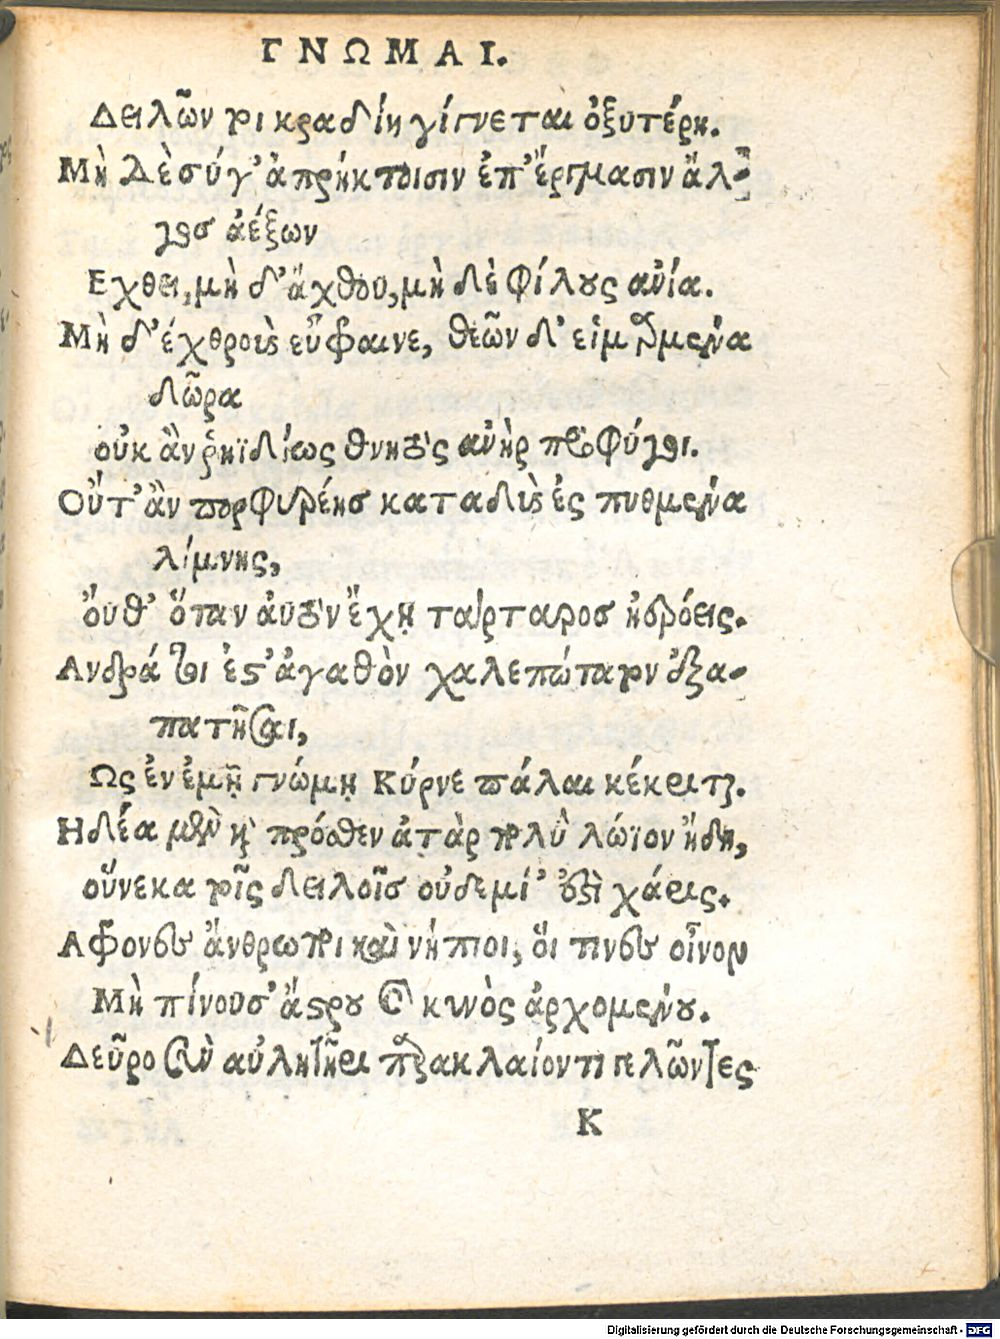 ΓΝΩΜΑΙ.
Δειλῶν τοι κραδίη γίγνεται ὀξυτέρη.
Μὴ δὲ σύ γ' ἀπρήκτοισιν ἐπ' ἔργμασιν ἄλ-
γεσ ἀέξων
Εχθει, μὴ δ' ἄχθου, μὴ δὲ φίλους ἀνία.
Μὴ δ' ἐχθροὺς εὔφραινε, θεῶν δ' εἱμαρμένα
δῶρα
οὐκ ἂν ῥηϊδίως θνητὸς ἀνὴρ προφύγοι.
Οὔτ' ἂν πορφυρέησ καταδὺς ἐς πυθμένα
λίμνης,
οὔθ' ὅταν ἀυτὸν ἔχῃ τάρταροσ ἠερόεις.
Ανδρά τοι ἐστ' ἀγαθὸν χαλεπώτατον ἐξα-
πατῆσαι,
Ως ἐν ἐμῇ γνώμῃ Κύρνε πάλαι κέκριται.
Ηδέα μὲν πρόσθεν ἀτὰρ πολὺ λώϊον ἤδη,
οὕνεκα τοῖς δειλοῖσ οὐδεμί' ἐστὶ χάρις.
Αφρονες ἄνθρωποι καὶ νήπιοι, ὅι τινες οἶνον
Μὴ πίνουσ' ἄστρου καὶ κυνὸς ἀρχομένου.
Δεῦρο σὺν αὐλητῆρι παρακλαίοντι γελῶντες
K
Digitalisierung gefördert durch die Deutsche Forschungsgemeinschaft - DFG